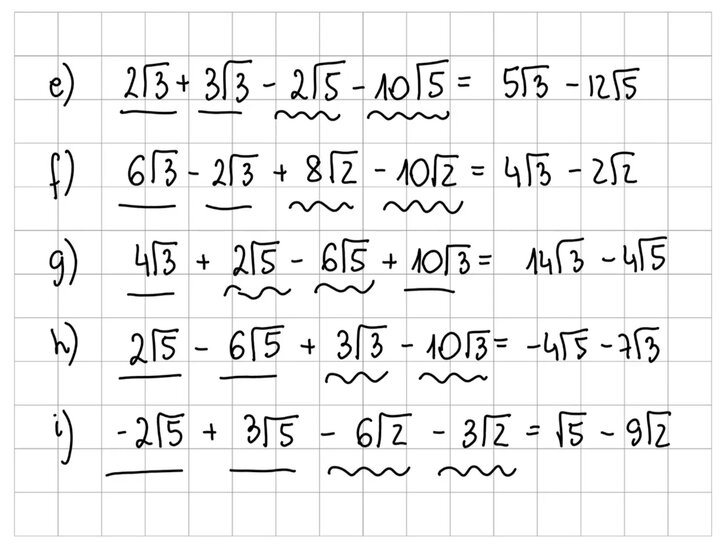 e) 2√3 + 3√3 - 2√5 - 10√5 = 5√3 - 12√5
f) 6√3 - 2√3 + 8√2 - 10√2 = 4√3 - 2√2
g) 4√3 + 2√5 - 6√5 + 10√3 = 14√3 - 4√5
h) 2√5 - 6√5 + 3√3 - 10√3 = -4√5 - 7√3
i) -2√5 + 3√5 - 6√2 - 3√2 = √5 - 9√2